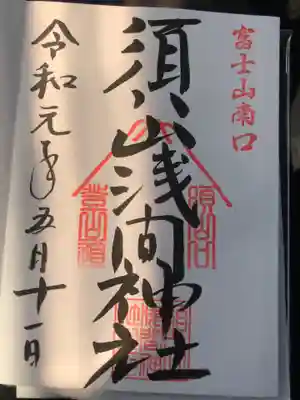 富士山南口
須山浅間神社
令和元年五月十一日